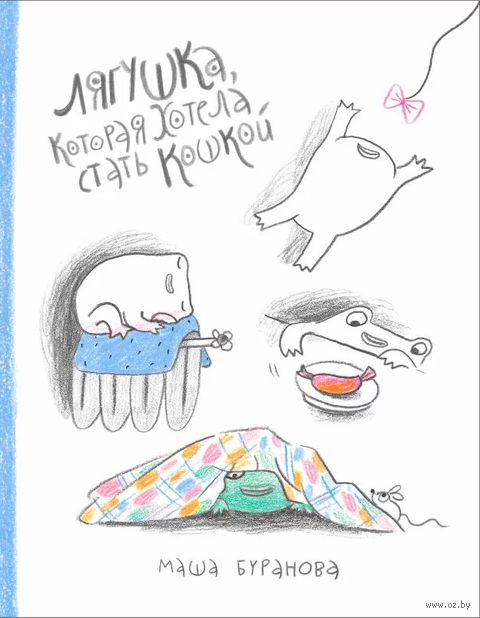 Лягушка,
которая хотела
стать кошкой
Маша Буранова
www.oz.by